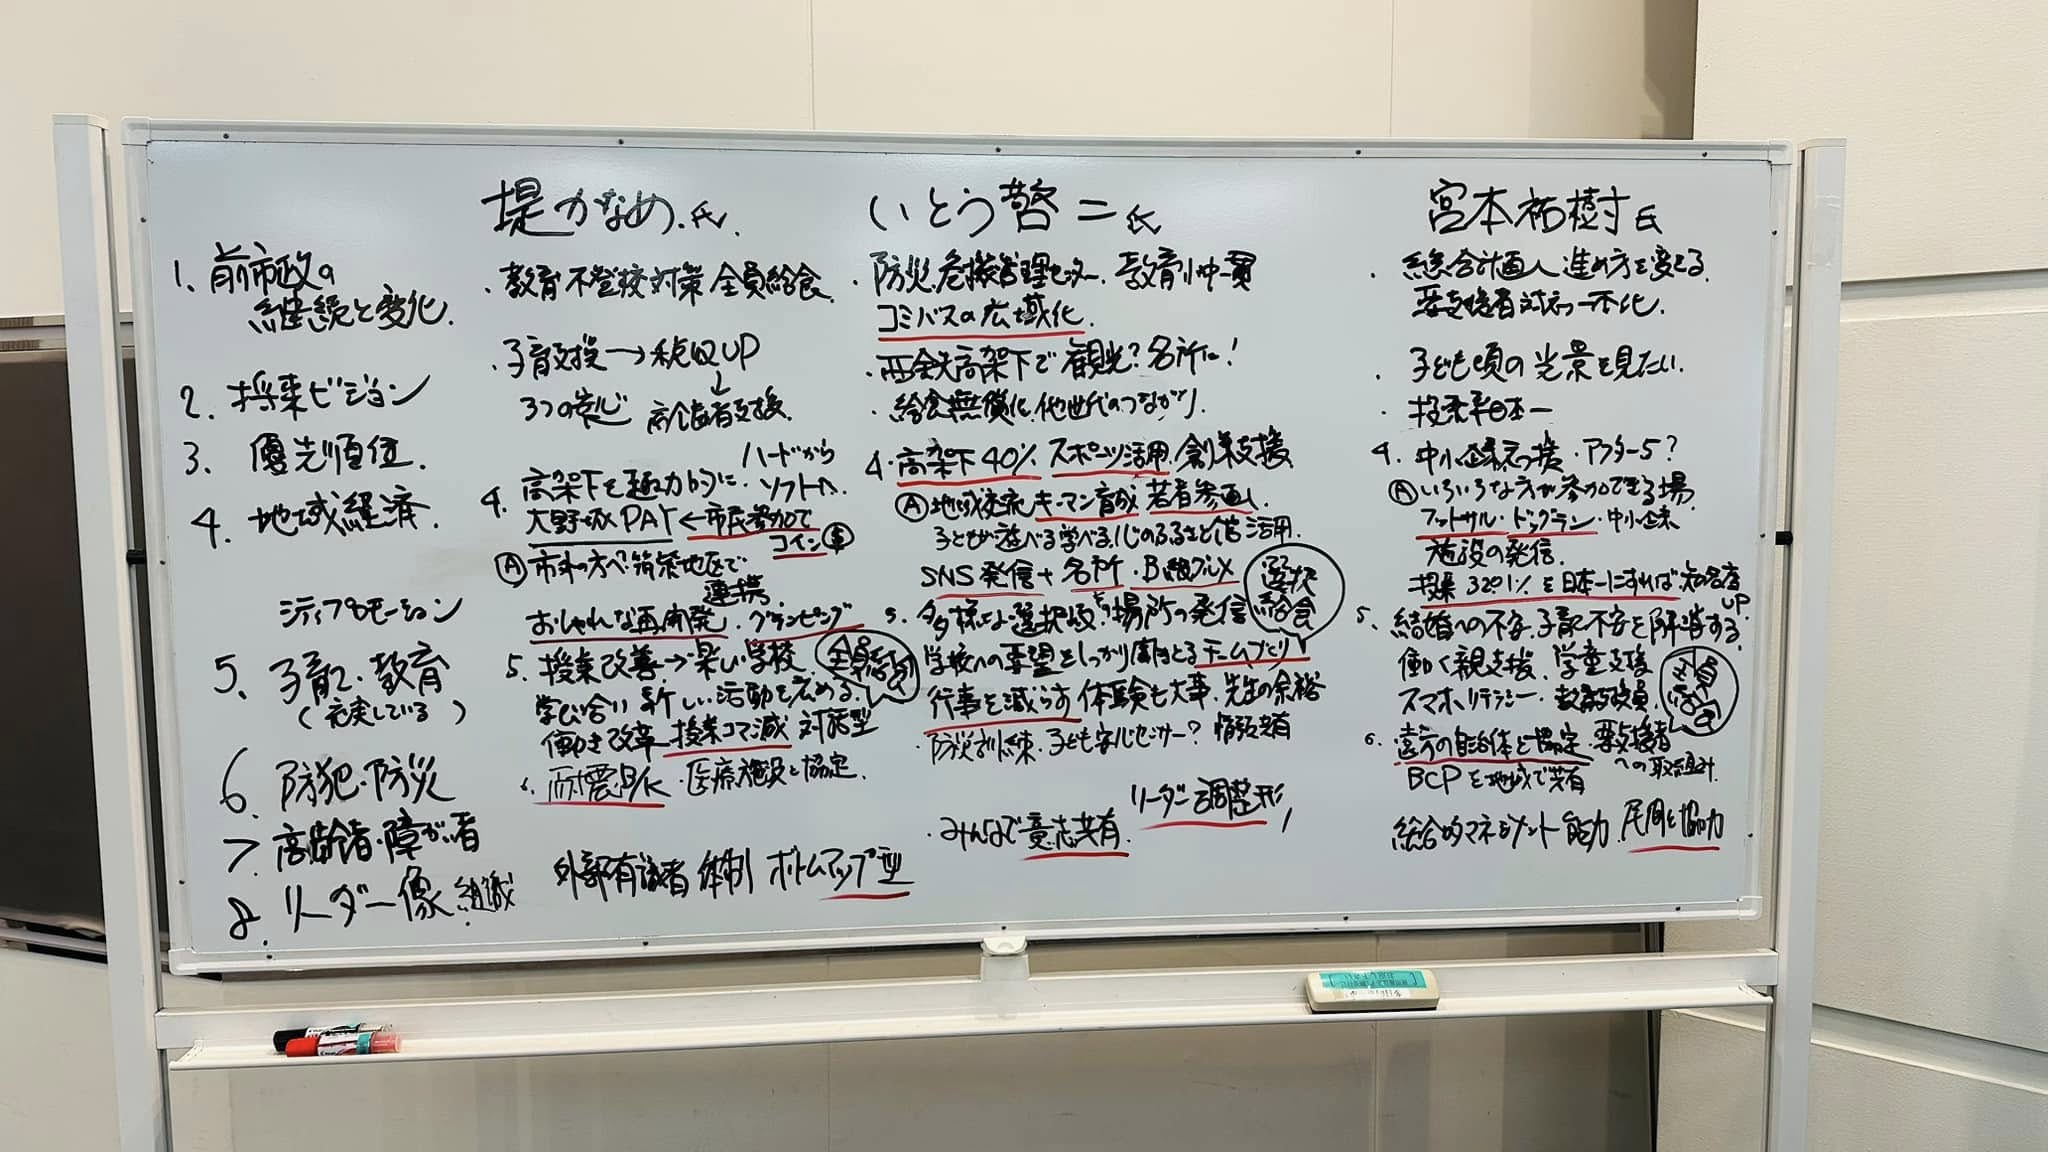 1. 前市政の
継続と変化.
2. 将来ビジョン
3. 優先順位.
4. 地域経済.
シティプロモーション
5. 子育て・教育
(充実している)
6. 防犯・防災
7 高齢者・障がい者
8. リーダー像 組織
堤かなめ.氏.
・教育 不登校対策 全員給食.
・子育支援→税収UP
↓
3つの安心 高齢者支援.
ハードから
4. 高架下を魅力的に. ソフトへ.
大野城PAY←市民参加で
コイン$
Ⓐ市外の方へ 筑紫地区で
連携
おしゃれな再開発・グランピング
5. 授業改善→楽しい学校
全員給食
学び合い 新しい活動を広める.
働き改革 授業コマ減 対話型
6. 耐震化・医療施設と協定.
外部有識者 体制 ボトムアップ型
いとう啓二氏
・防災 危機管理センター. 教育小中一貫
コミバスの広域化.
・西鉄高架下で観光?名所に!
・給食無償化.他世代のつながり.
4.高架下40% スポーツ活用.創業支援
Ⓐ地域交流 キーマン育成 若者参画し
子どもが遊べる学べる.心のふるさと館活用.
SNS発信+名所・B級グルメ
選択
給食
5. 多様な選択肢 場所の発信
学校への要望をしっかり聞きとるチームづくり
行事を減らす 体験も大事. 先生の余裕
・防災訓練. 子ども安心センサー? 情報共有
リーダー調整形
・みんなで意志共有.
宮本祐樹氏
・総合計画 進め方を変える.
要支援者対応一本化.
・子ども頃の光景を見たい.
・投票率日本一
4. 中小企業応援・アフター5?
Ⓐいろいろな方が参加できる場
フットサル・ドッグラン・中小企業
施設の発信.
投票 32.1%を日本一にすれば 知名度
UP
5. 結婚への不安.子育て不安を解消する.
働く親支援. 学童支援
スマホリテラシー・
全員
給食
6. 遠方の自治体と協定・要支援者
への取組み.
BCPを地域で共有
総合的マネジメント能力. 民間と協力